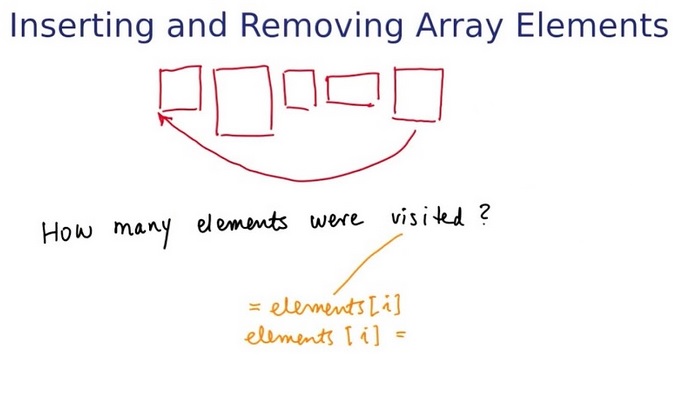 Inserting and Removing Array Elements
How many elements were visited ?
= elements[i]
elements [i] =